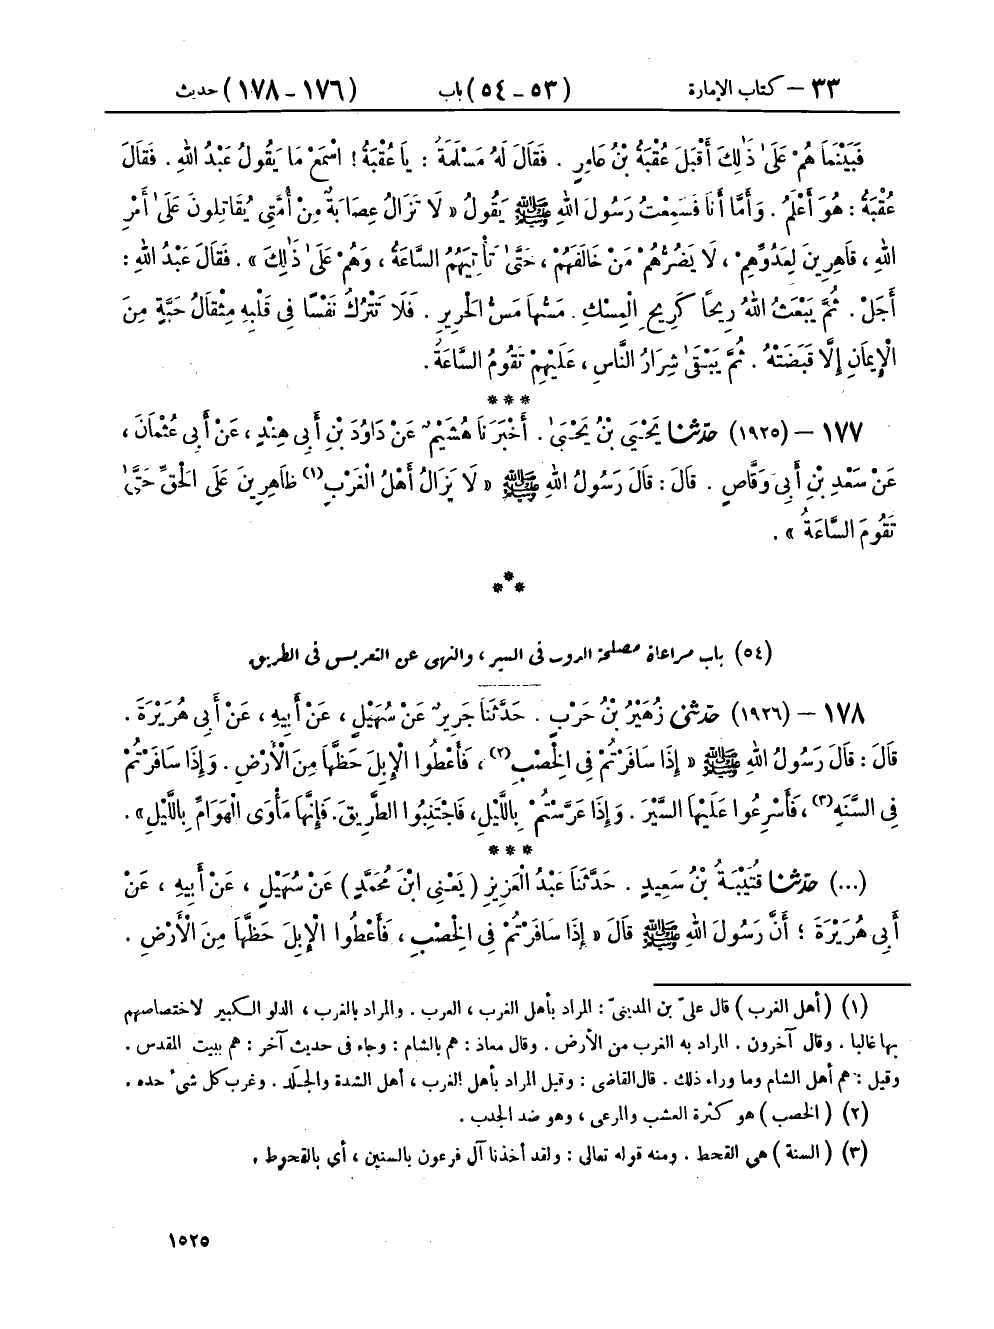 ٣٣ – كتاب الإمارة (٥٣ – ٥٤) باب (١٧٦ – ١٧٨) حديث
فَبَيْنَمَا هُمْ عَلَىٰ ذَٰلِكَ أَقْبَلَ عُقْبَةُ بْنُ عَامِرٍ . فَقَالَ لَهُ مَسْلَمَةُ : يَا عُقْبَةُ ! اسْمَعْ مَا يَقُولُ عَبْدُ اللهِ . فَقَالَ
عُقْبَةُ : هُوَ أَعْلَمُ . وَأَمَّا أَنَا فَسَمِعْتُ رَسُولَ اللهِ ﷺ يَقُولُ « لَا تَزَالُ عِصَابَةٌ مِنْ أُمَّتِي يُقَاتِلُونَ عَلَىٰ أَمْرِ
اللهِ ، قَاهِرِينَ لِعَدُوِّهِمْ ، لَا يَضُرُّهُمْ مَنْ خَالَفَهُمْ ، حَتَّىٰ تَأْتِيَهُمُ السَّاعَةُ ، وَهُمْ عَلَىٰ ذَٰلِكَ » . فَقَالَ عَبْدُ اللهِ :
أَجَلْ . ثُمَّ يَبْعَثُ اللهُ رِيحًا كَرِيحِ الْمِسْكِ . مَسُّهَا مَسُّ الْحَرِيرِ . فَلَا تَتْرُكُ نَفْسًا فِي قَلْبِهِ مِثْقَالُ حَبَّةٍ مِنَ
الْإِيمَانِ إِلَّا قَبَضَتْهُ . ثُمَّ يَبْقَىٰ شِرَارُ النَّاسِ ، عَلَيْهِمْ تَقُومُ السَّاعَةُ .
* * *
١٧٧ – (١٩٢٥) حَدَّثَنَا يَحْيَىٰ بْنُ يَحْيَىٰ . أَخْبَرَنَا هُشَيْمٌ عَنْ دَاوُدَ بْنِ أَبِي هِنْدٍ ، عَنْ أَبِي عُثْمَانَ ،
عَنْ سَعْدِ بْنِ أَبِي وَقَّاصٍ . قَالَ : قَالَ رَسُولُ اللهِ ﷺ « لَا يَزَالُ أَهْلُ الْغَرْبِ(١) ظَاهِرِينَ عَلَى الْحَقِّ حَتَّىٰ
تَقُومَ السَّاعَةُ » .
* * *
(٥٤) باب مراعاة مصلحة الدواب في السير ، والنهي عن التعريس في الطريق
١٧٨ – (١٩٢٦) حَدَّثَنِي زُهَيْرُ بْنُ حَرْبٍ . حَدَّثَنَا جَرِيرٌ عَنْ سُهَيْلٍ ، عَنْ أَبِيهِ ، عَنْ أَبِي هُرَيْرَةَ .
قَالَ : قَالَ رَسُولُ اللهِ ﷺ « إِذَا سَافَرْتُمْ فِي الْخِصْبِ(٢) ، فَأَعْطُوا الْإِبِلَ حَظَّهَا مِنَ الْأَرْضِ . وَإِذَا سَافَرْتُمْ
فِي السَّنَةِ(٣) ، فَأَسْرِعُوا عَلَيْهَا السَّيْرَ . وَإِذَا عَرَّسْتُمْ بِاللَّيْلِ ، فَاجْتَنِبُوا الطَّرِيقَ . فَإِنَّهَا مَأْوَى الْهَوَامِّ بِاللَّيْلِ » .
* * *
(...) حَدَّثَنَا قُتَيْبَةُ بْنُ سَعِيدٍ . حَدَّثَنَا عَبْدُ الْعَزِيزِ ( يَعْنِي ابْنَ مُحَمَّدٍ ) عَنْ سُهَيْلٍ ، عَنْ أَبِيهِ ، عَنْ
أَبِي هُرَيْرَةَ ؛ أَنَّ رَسُولَ اللهِ ﷺ قَالَ « إِذَا سَافَرْتُمْ فِي الْخِصْبِ ، فَأَعْطُوا الْإِبِلَ حَظَّهَا مِنَ الْأَرْضِ .
(١) ( أهل الغرب ) قال عليّ بن المدينيّ : المراد بأهل الغرب ، العرب . والمراد بالغرب ، الدلو الكبير لاختصاصهم
بها غالبا . وقال آخرون . المراد به الغرب من الأرض . وقال معاذ : هم بالشام : وجاء فى حديث آخر : هم ببيت المقدس .
وقيل : هم أهل الشام وما وراء ذلك . قال القاضى : وقيل المراد بأهل الغرب ، أهل الشدة والجلد . وغرب كل شئ حده .
(٢) ( الخصب ) هو كثرة العشب والمرعى ، وهو ضد الجدب .
(٣) ( السنة ) هى القحط . ومنه قوله تعالى : ولقد أخذنا آل فرعون بالسنين ، أي بالقحوط .
١٥٢٥